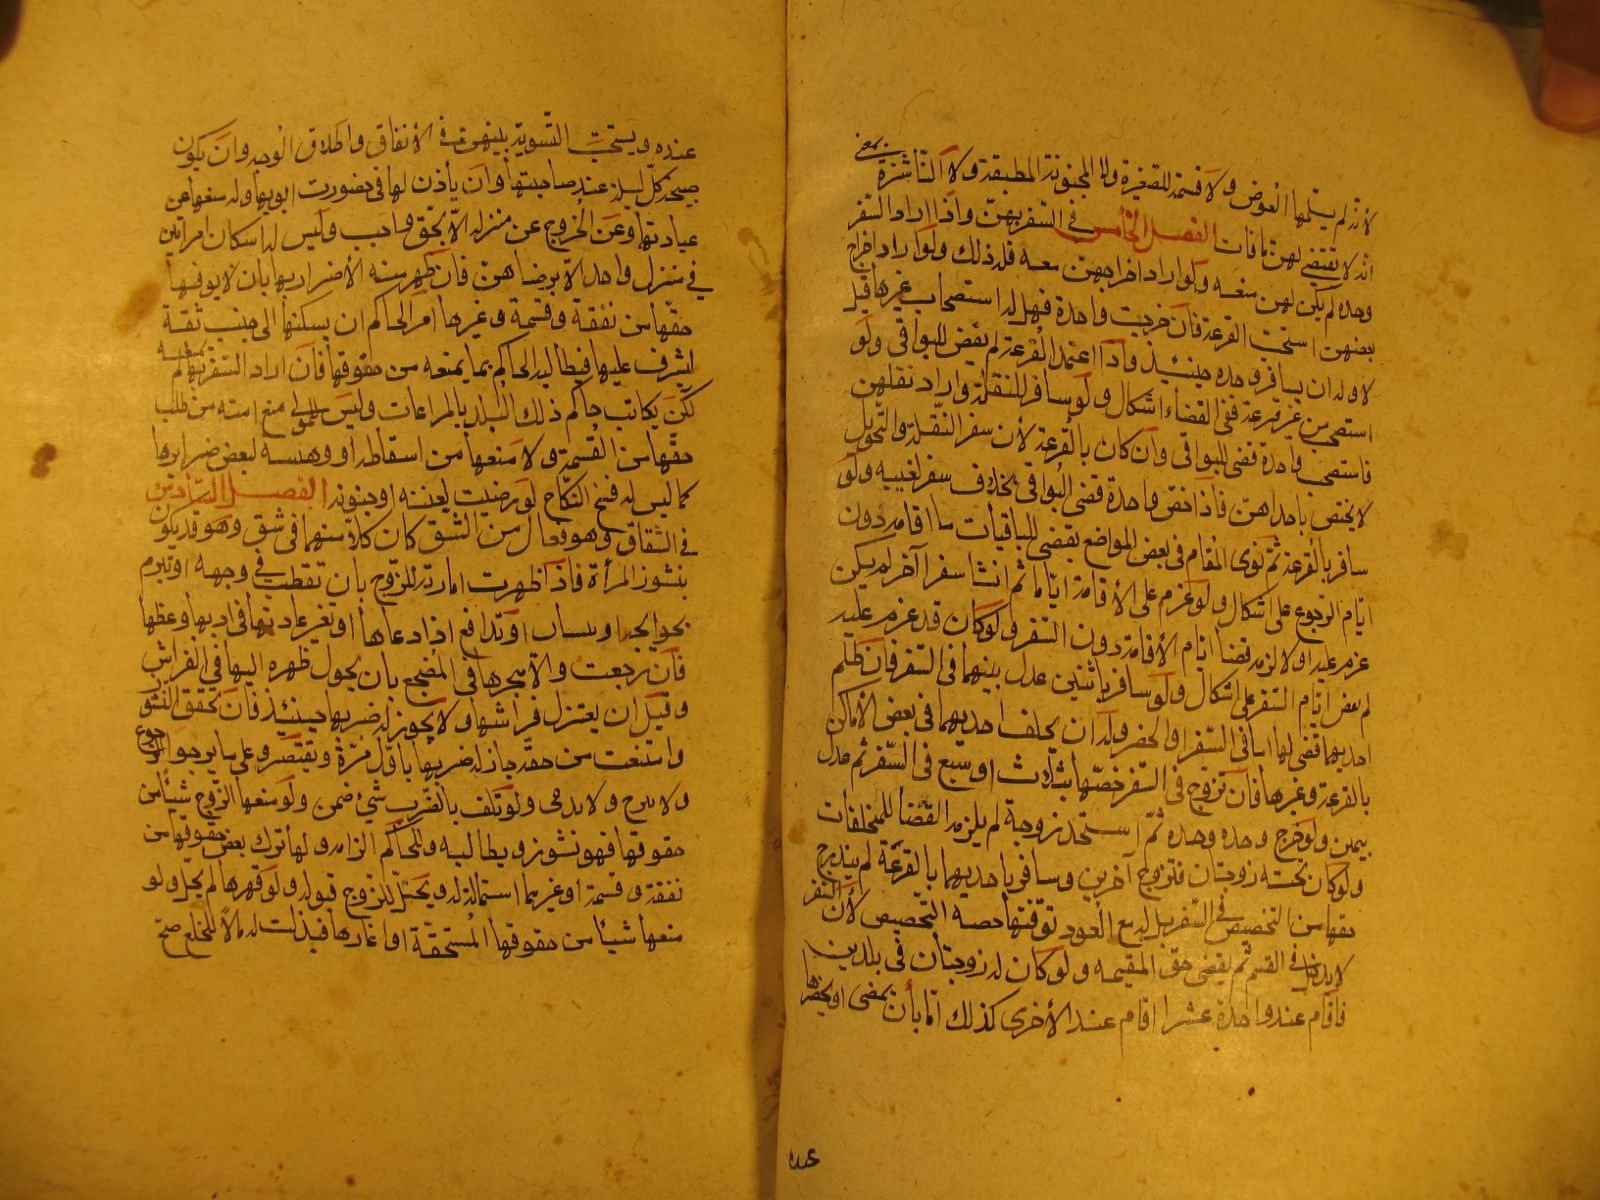 لأنه لم يسلمها العوض ولا قسمة للصغيرة ولا المجنونة المطبقة ولا الناشزة بمعنى
انه لا يقتضي لهن ما فات الفصل الخامس في السفر بهن واذا اراد السفر
وحده لم يكن لهن منعه ولو اراد اخراجهن معه فله ذلك ولو اراد اخراج
بعضهن استحب القرعة فان خرجت واحدة فهل له استصحاب غيرها قيل
لا وله ان يسافر وحده حينئذ واذا اعتمد القرعة لم يقض للبواقي ولو
استصحب من غير قرعة ففي القضاء اشكال ولو سافر للنقلة واراد نقلهن
فاستصحب واحدة قضى للبواقي وان كان بالقرعة لأن سفر النقلة والتحويل
لا يختص باحداهن فاذا خص واحدة قضى البواقي بخلاف سفر لغيبه ولو
سافر بالقرعة ثم نوى المقام في بعض المواضع يقضى للباقيات ما اقامه دون
ايام الرجوع على اشكال ولو عزم على الأقامة اياما ثم انشا سفرا آخر لم يكن
عزم عليه اولا لزمه قضا ايام الأقامة دون السفر ولو كان قد عزم عليه
لم يقض ايام السفر على اشكال ولو سافر باثنتين عدل بينهما في السفر فان ظلم
احديهما قضى لها اما في السفر او الحضر وله ان يخلف احديهما في بعض الأماكن
بالقرعة وغيرها فان تزوج في السفر خصها بثلاث او سبع في السفر ثم عدل
بينهن ولو خرج وحده ثم استجد زوجة لم يلزمه القضا للمتخلفات
ولو كان تحته زوجتان فتزوج آخرين وسافر باحديهما بالقرعة لم يندرج
حقها من التخصيص في السفر بل له مع العود توفيتها حصة التخصيص لأن السفر
لا يدخل في القسم ثم يقضى حق المقيمه ولو كان له زوجتان في بلدين
فاقام عند واحدة عشرا اقام عند الأخرى كذلك اما بأن يمضى او يحضرها
عنده
عنده ويستحب التسوية بينهن في الأنفاق واطلاق الوجه وان يكون
صبيحة كل ليلة عند صاحبتها وان يأذن لها في حضورت ابويها وله منعها عن
عيادتها وعن الخروج عن منزله الا بحق واجب وليس له اسكان امراتين
في منزل واحد الا برضاهن فان ظهر منه الأضرار بها بان لا يوفيها
حقها من نفقة وقسمة وغيرها امر الحاكم ان يسكنها الى جنب ثقة
ليشرف عليها فيطالبه الحاكم بما يمنعه من حقوقها فان اراد السفر بها لم يمنعه
لكن يكاتب حاكم ذلك البلد بالمراعات وليس للمولى منع امته من طلب
حقها من القسمة ولا منعها من اسقاطه او وهبته لبعض ضرايرها
كما ليس له فسخ النكاح لو رضيت لعننه او جنونه الفصل السادس
في الشقاق وهو فعال من الشق كان كلا منهما في شق وهو قد يكون
بنشوز المرأة فاذا ظهرت امارته للزوج بان تقطب في وجهه او تبرم
بحوايجه او تتدافع اذا دعاها او تغير عادتها في ادبها وعظها
فان رجعت والا هجرها في المضجع بان يحول ظهره اليها في الفراش
وقيل ان يعتزل فراشها ولا يجوز له ضربها حينئذ فان تحقق النشوز
وامتنعت من حقه جاز له ضربها باول مرة ويقتصر على ما يرجو الرجوع
ولا يبرح ولا يدمى ولو تلف بالضرب شيئ ضمن ولو منعها الزوج شيأ من
حقوقها فهو نشوز ويطالبه وللحاكم الزامه ولها ترك بعض حقوقها من
نفقة وقسمة او غيرهما استمالة له ويحل للزوج قبوله ولو قهرها لم يحل ولو
منعها شيأ من حقوقها المستحقة او اغارها فبذلت له مالا للخلع صح